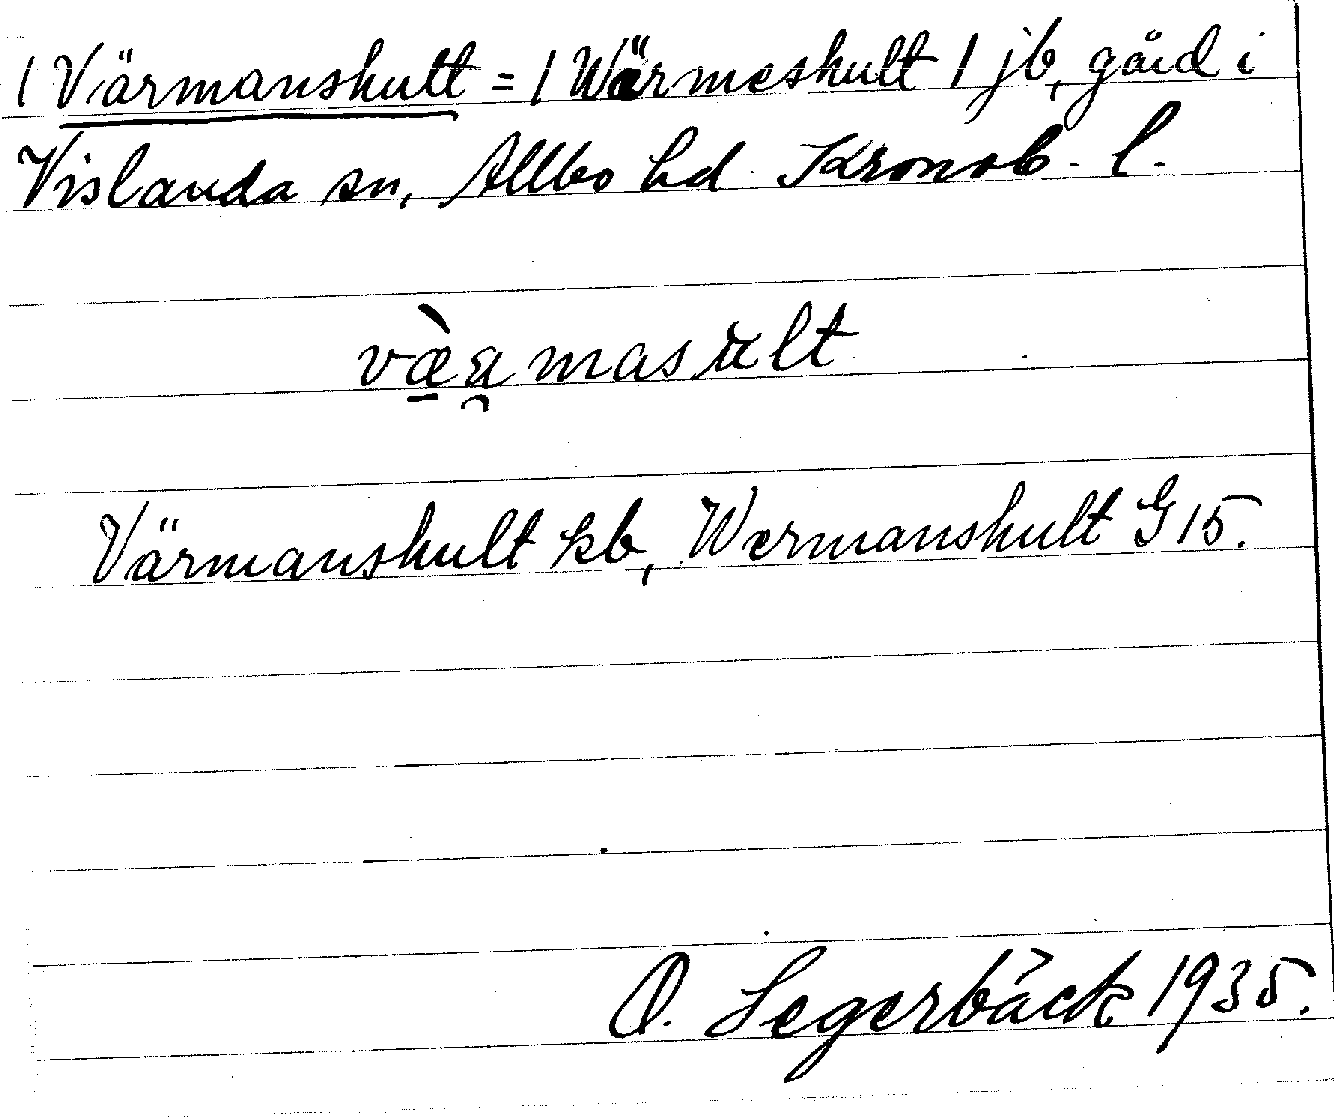 / Värmanshult = / Wärmeshult / jb, gård i
Vislanda sn, Allbo hd. Kronob. l.
Värmanshult kb, Wermanshult G 15.
O. Segerbäck 1935.